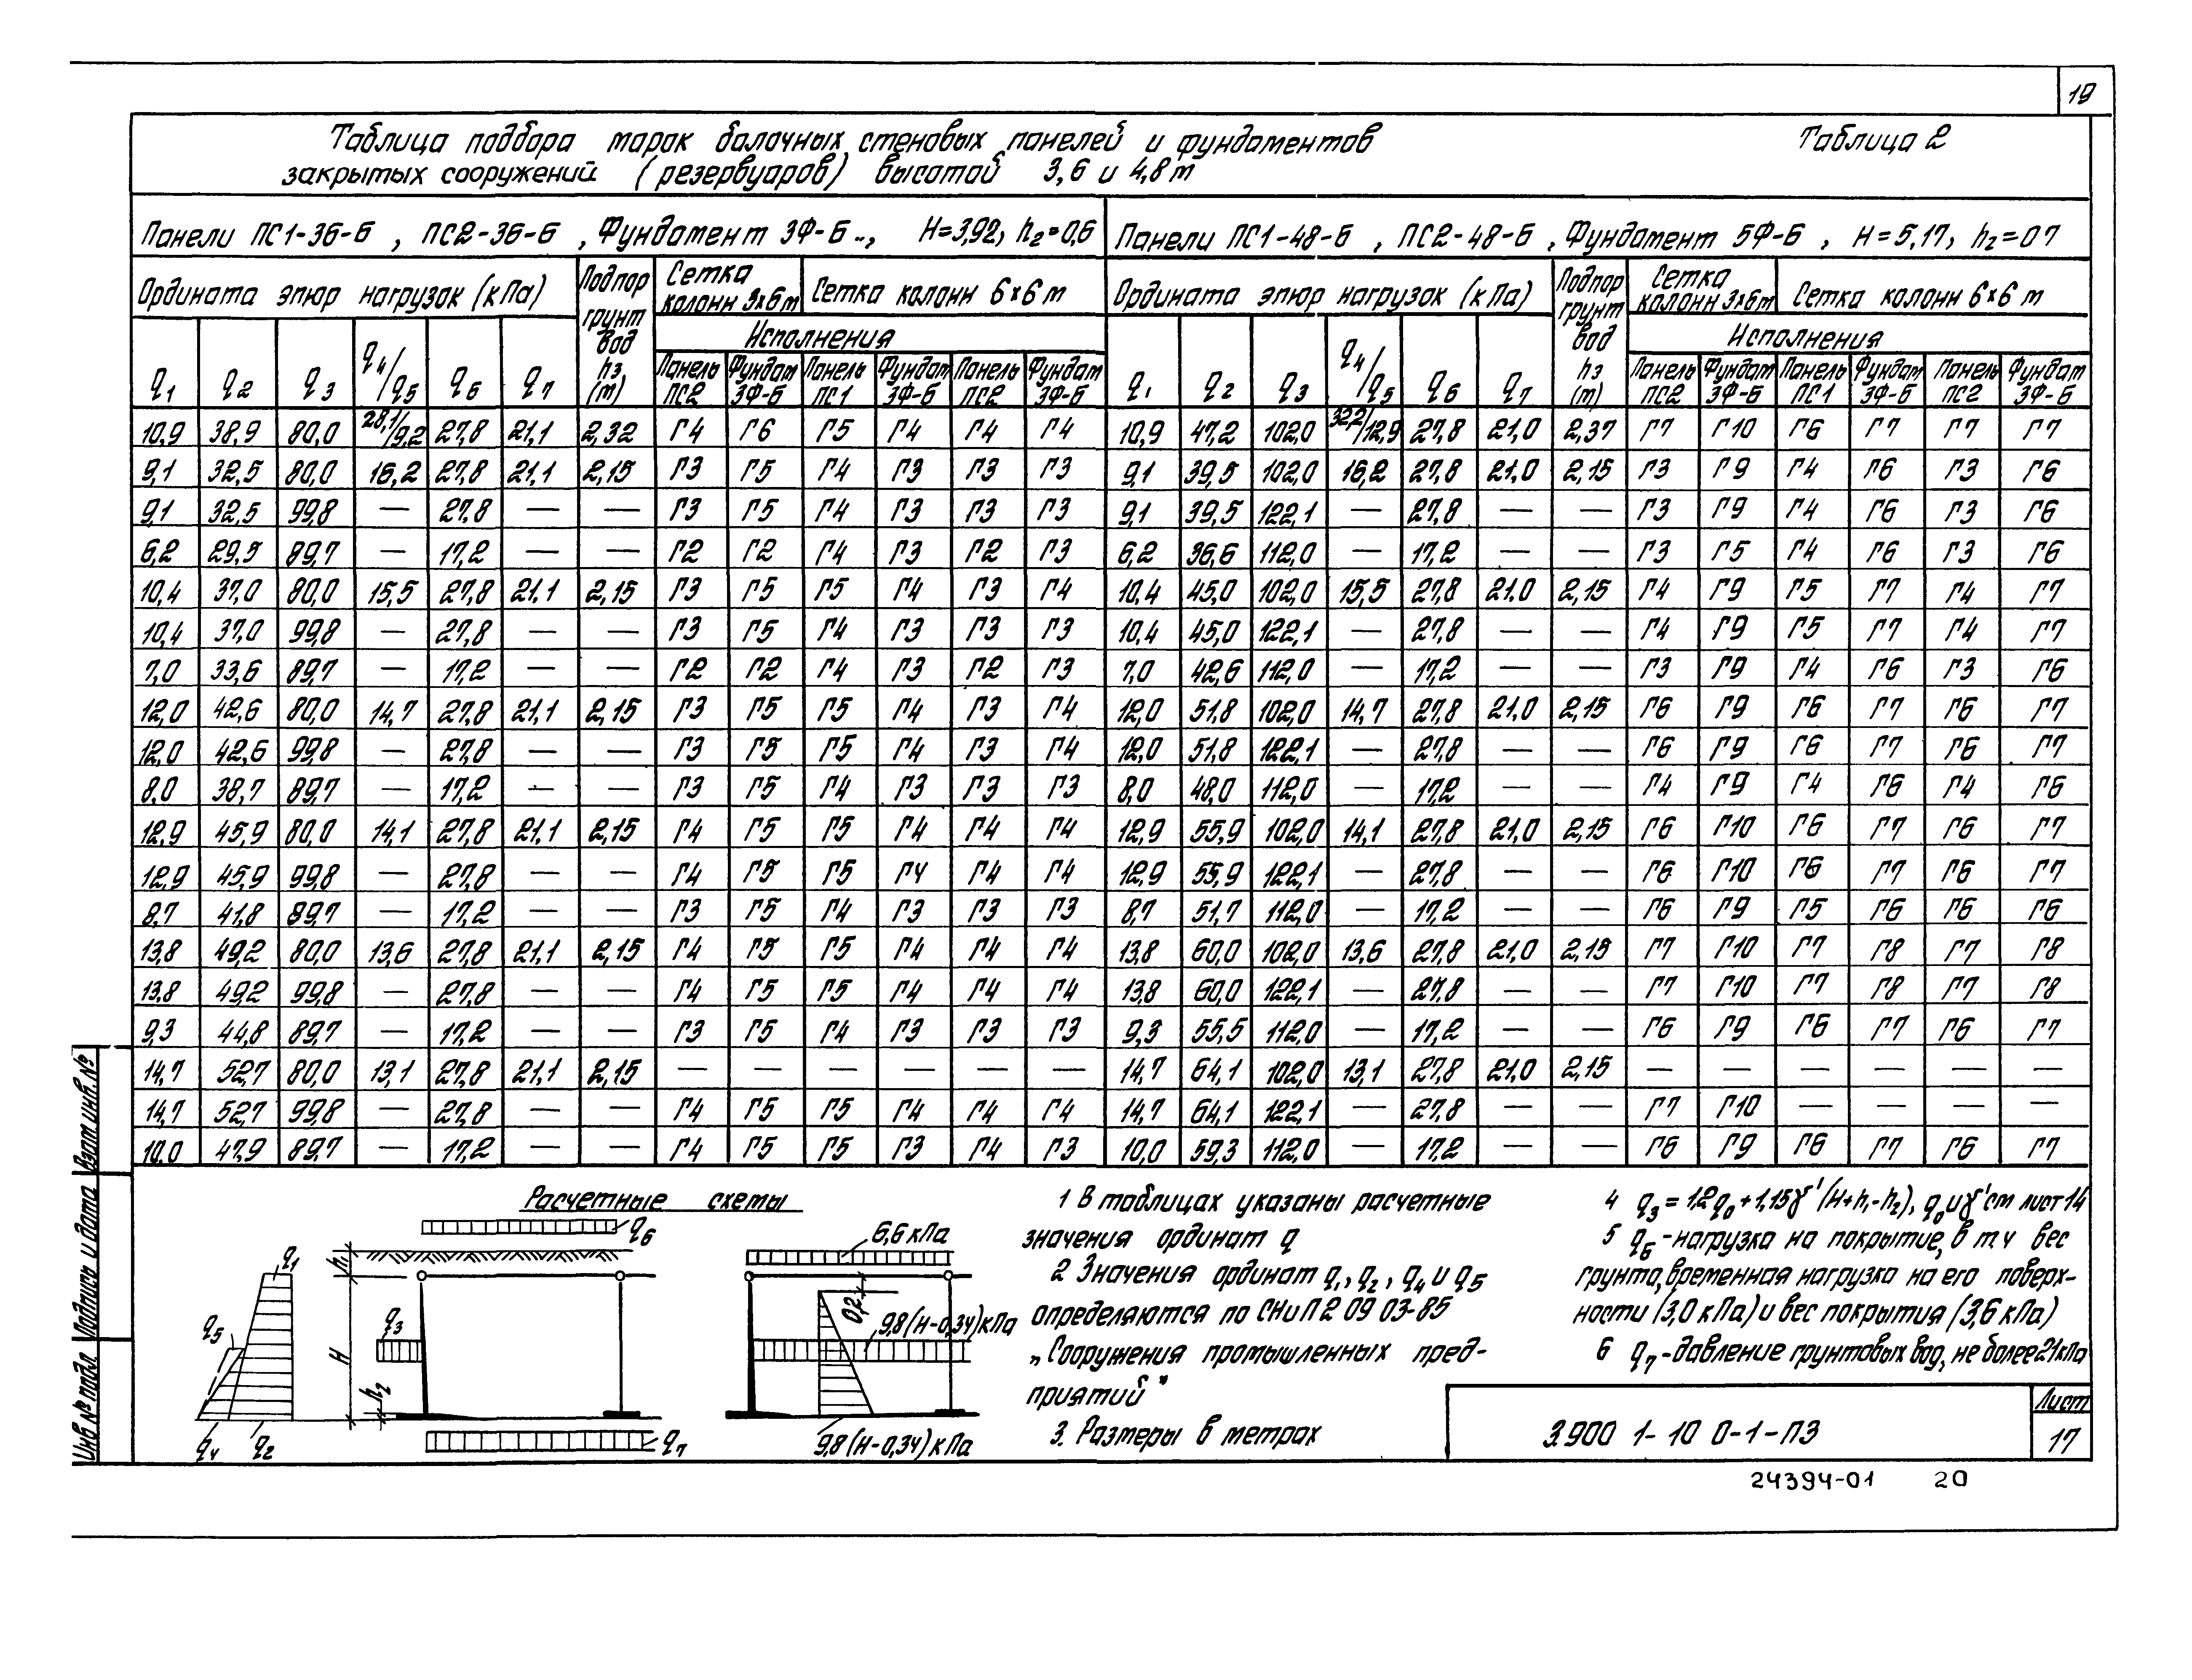 19
Таблица подбора марок балочных стеновых панелей и фундаментов
закрытых сооружений (резервуаров) высотой 3,6 и 4,8 м
Таблица 2
Панели ПС1-36-Б , ПС2-36-Б , Фундамент 3Ф-Б .., Н=3,92, h2=0,6
Панели ПС1-48-Б , ПС2-48-Б , Фундамент 5Ф-Б , Н=5,17, h2=0 7
Ордината эпюр нагрузок (кПа) Подпор грунт вод h3 (м) Сетка колонн 3х6м Сетка колонн 6х6 м
Ордината эпюр нагрузок (кПа) Подпор грунт вод h3 (м) Сетка колонн 3х6м Сетка колонн 6х6 м
Исполнения Исполнения
q1 q2 q3 q4/q5 q6 q7 Панель ПС2 Фундам 3Ф-Б Панель ПС1 Фундам 3Ф-Б Панель ПС2 Фундам 3Ф-Б
q1 q2 q3 q4/q5 q6 q7 Панель ПС2 Фундам 3Ф-Б Панель ПС1 Фундам 3Ф-Б Панель ПС2 Фундам 3Ф-Б
10,9 38,9 80,0 28,1/9,2 27,8 21,1 2,32 Г4 Г6 Г5 Г4 Г4 Г4 10,9 47,2 102,0 32,2/12,9 27,8 21,0 2,37 Г7 Г10 Г6 Г7 Г7 Г7
9,1 32,5 80,0 16,2 27,8 21,1 2,15 Г3 Г5 Г4 Г3 Г3 Г3 9,1 39,5 102,0 16,2 27,8 21,0 2,15 Г3 Г9 Г4 Г6 Г3 Г6
9,1 32,5 99,8 — 27,8 — — Г3 Г5 Г4 Г3 Г3 Г3 9,1 39,5 122,1 — 27,8 — — Г3 Г9 Г4 Г6 Г3 Г6
6,2 29,5 89,7 — 17,2 — — Г2 Г2 Г4 Г3 Г2 Г3 6,2 36,6 112,0 — 17,2 — — Г3 Г5 Г4 Г6 Г3 Г6
10,4 37,0 80,0 15,5 27,8 21,1 2,15 Г3 Г5 Г5 Г4 Г3 Г4 10,4 45,0 102,0 15,5 27,8 21,0 2,15 Г4 Г9 Г5 Г7 Г4 Г7
10,4 37,0 99,8 — 27,8 — — Г3 Г5 Г4 Г3 Г3 Г3 10,4 45,0 122,1 — 27,8 — — Г4 Г9 Г5 Г7 Г4 Г7
7,0 33,6 89,7 — 17,2 — — Г2 Г2 Г4 Г3 Г2 Г3 7,0 42,6 112,0 — 17,2 — — Г3 Г9 Г4 Г6 Г3 Г6
12,0 42,6 80,0 14,7 27,8 21,1 2,15 Г3 Г5 Г5 Г4 Г3 Г4 12,0 51,8 102,0 14,7 27,8 21,0 2,15 Г6 Г9 Г6 Г7 Г6 Г7
12,0 42,6 99,8 — 27,8 — — Г3 Г5 Г5 Г4 Г3 Г4 12,0 51,8 122,1 — 27,8 — — Г6 Г9 Г6 Г7 Г6 Г7
8,0 38,7 89,7 — 17,2 — — Г3 Г5 Г4 Г3 Г3 Г3 8,0 48,0 112,0 — 17,2 — — Г4 Г9 Г4 Г6 Г4 Г6
12,9 45,9 80,0 14,1 27,8 21,1 2,15 Г4 Г5 Г5 Г4 Г4 Г4 12,9 55,9 102,0 14,1 27,8 21,0 2,15 Г6 Г10 Г6 Г7 Г6 Г7
12,9 45,9 99,8 — 27,8 — — Г4 Г5 Г5 Г4 Г4 Г4 12,9 55,9 122,1 — 27,8 — — Г6 Г10 Г6 Г7 Г6 Г7
8,7 41,8 89,7 — 17,2 — — Г3 Г5 Г4 Г3 Г3 Г3 8,7 51,7 112,0 — 17,2 — — Г6 Г9 Г5 Г6 Г6 Г6
13,8 49,2 80,0 13,6 27,8 21,1 2,15 Г4 Г5 Г5 Г4 Г4 Г4 13,8 60,0 102,0 13,6 27,8 21,0 2,15 Г7 Г10 Г7 Г8 Г7 Г8
13,8 49,2 99,8 — 27,8 — — Г4 Г5 Г5 Г4 Г4 Г4 13,8 60,0 122,1 — 27,8 — — Г7 Г10 Г7 Г8 Г7 Г8
9,3 44,8 89,7 — 17,2 — — Г3 Г5 Г4 Г3 Г3 Г3 9,3 55,5 112,0 — 17,2 — — Г6 Г9 Г6 Г7 Г6 Г7
14,7 52,7 80,0 13,1 27,8 21,1 2,15 — — — — — — 14,7 64,1 102,0 13,1 27,8 21,0 2,15 — — — — — —
14,7 52,7 99,8 — 27,8 — — Г4 Г5 Г5 Г4 Г4 Г4 14,7 64,1 122,1 — 27,8 — — Г7 Г10 — — — —
10,0 47,9 89,7 — 17,2 — — Г4 Г5 Г5 Г3 Г4 Г3 10,0 59,3 112,0 — 17,2 — — Г6 Г9 Г6 Г7 Г6 Г7
Расчетные схемы
q6
6,6 кПа
q1
h1
q3
q5
H
h2
0,2
9,8 (H-0,34) кПа
q4 q2 q7
9,8 (H-0,34) кПа
1 В таблицах указаны расчетные
значения ординат q
2 Значения ординат q1, q2, q4 и q5
определяются по СНиП 2 09 03-85
„Сооружения промышленных пред-
приятий"
3. Размеры в метрах
4 q3 = 1,2q0 + 1,15γ'(H+h1-h2), q0 и γ' см лист 14
5 q6 - нагрузка на покрытие, в т.ч вес
грунта, временная нагрузка на его поверх-
ности (3,0 кПа) и вес покрытия (3,6 кПа)
6 q7 - давление грунтовых вод, не более 21 кПа
3.900 1-10 0-1-ПЗ
Лист
17
Инв № подл Подпись и дата Взам инв. №
24394-01 20